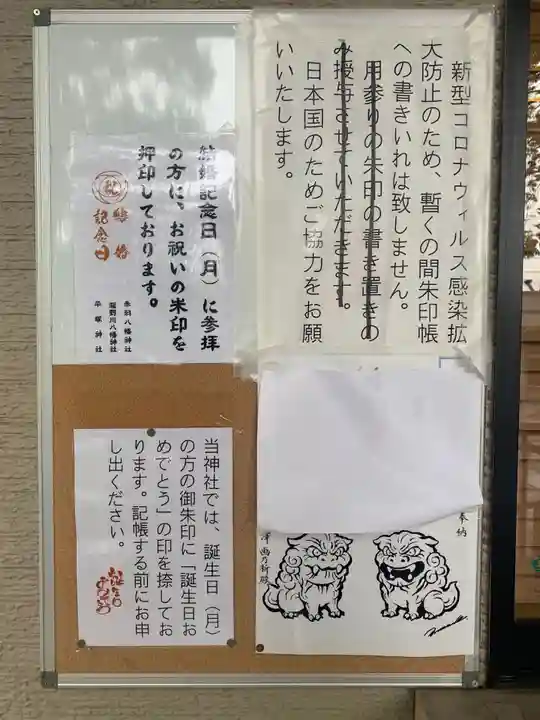 新型コロナウィルス感染拡
大防止のため、暫くの間朱印帳
への書きいれは致しません。
用参りの朱印の書き置きの
み授与させていただきます。
日本国のためご協力をお願
いいたします。
結婚記念日(月)に参拝
の方に、お祝いの朱印を
押印しております。
祝
結婚
記念日
赤羽八幡神社
瀧野川八幡神社
平塚神社
奉納
当神社では、誕生日(月)
の方の御朱印に「誕生日お
めでとう」の印を捺してお
ります。記帳する前にお申
し出ください。
誕生日
おめでとう